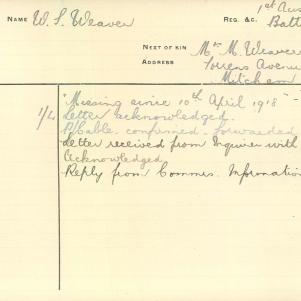 NAME W. S. Weaver
REG. &C. 1st Aus
Batt
NEXT OF KIN Mr M. Weaver
ADDRESS Torrens Avenue
Mitcham
"Missing since 10th April 1918"
1/L Letter acknowledged.
R/Cable. confirmed. forwarded
Letter received from Inquirer with
acknowledged
Reply from Commrs. Information